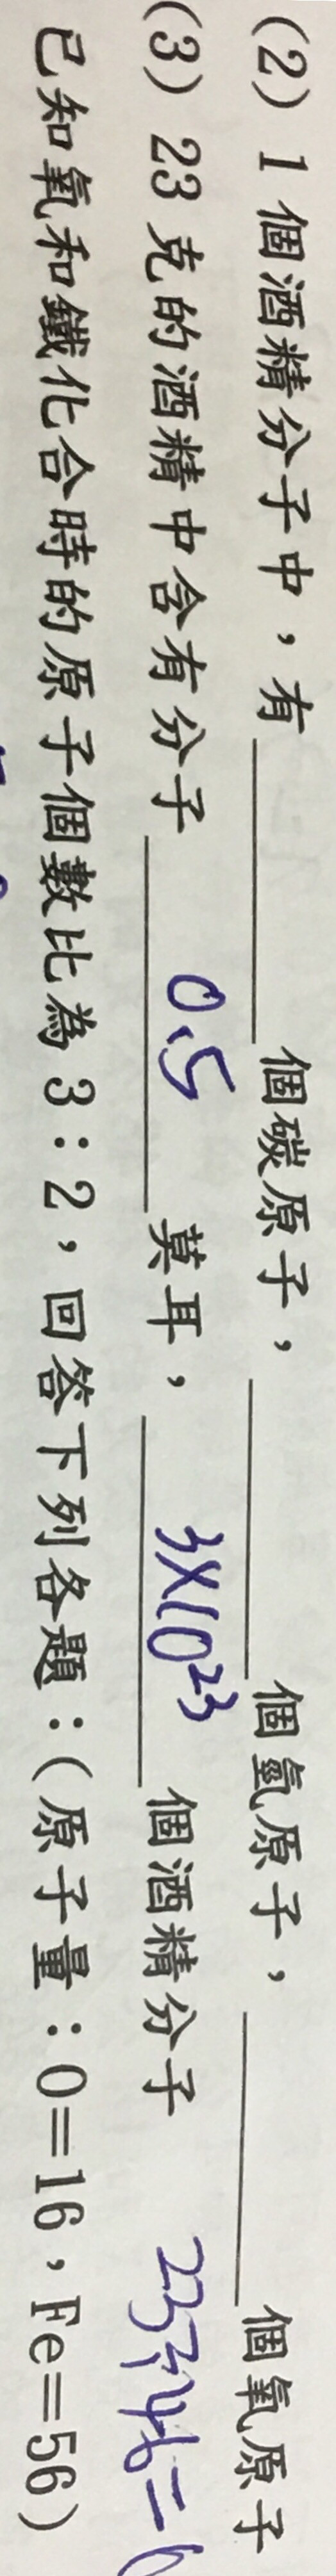 (2) 1 個酒精分子中，有______個碳原子，______個氫原子，______個氧原子
(3) 23 克的酒精中含有分子 0.5 莫耳， 3×10²³ 個酒精分子 23÷46=
已知氧和鐵化合時的原子個數比為 3：2，回答下列各題：(原子量：O=16，Fe=56)